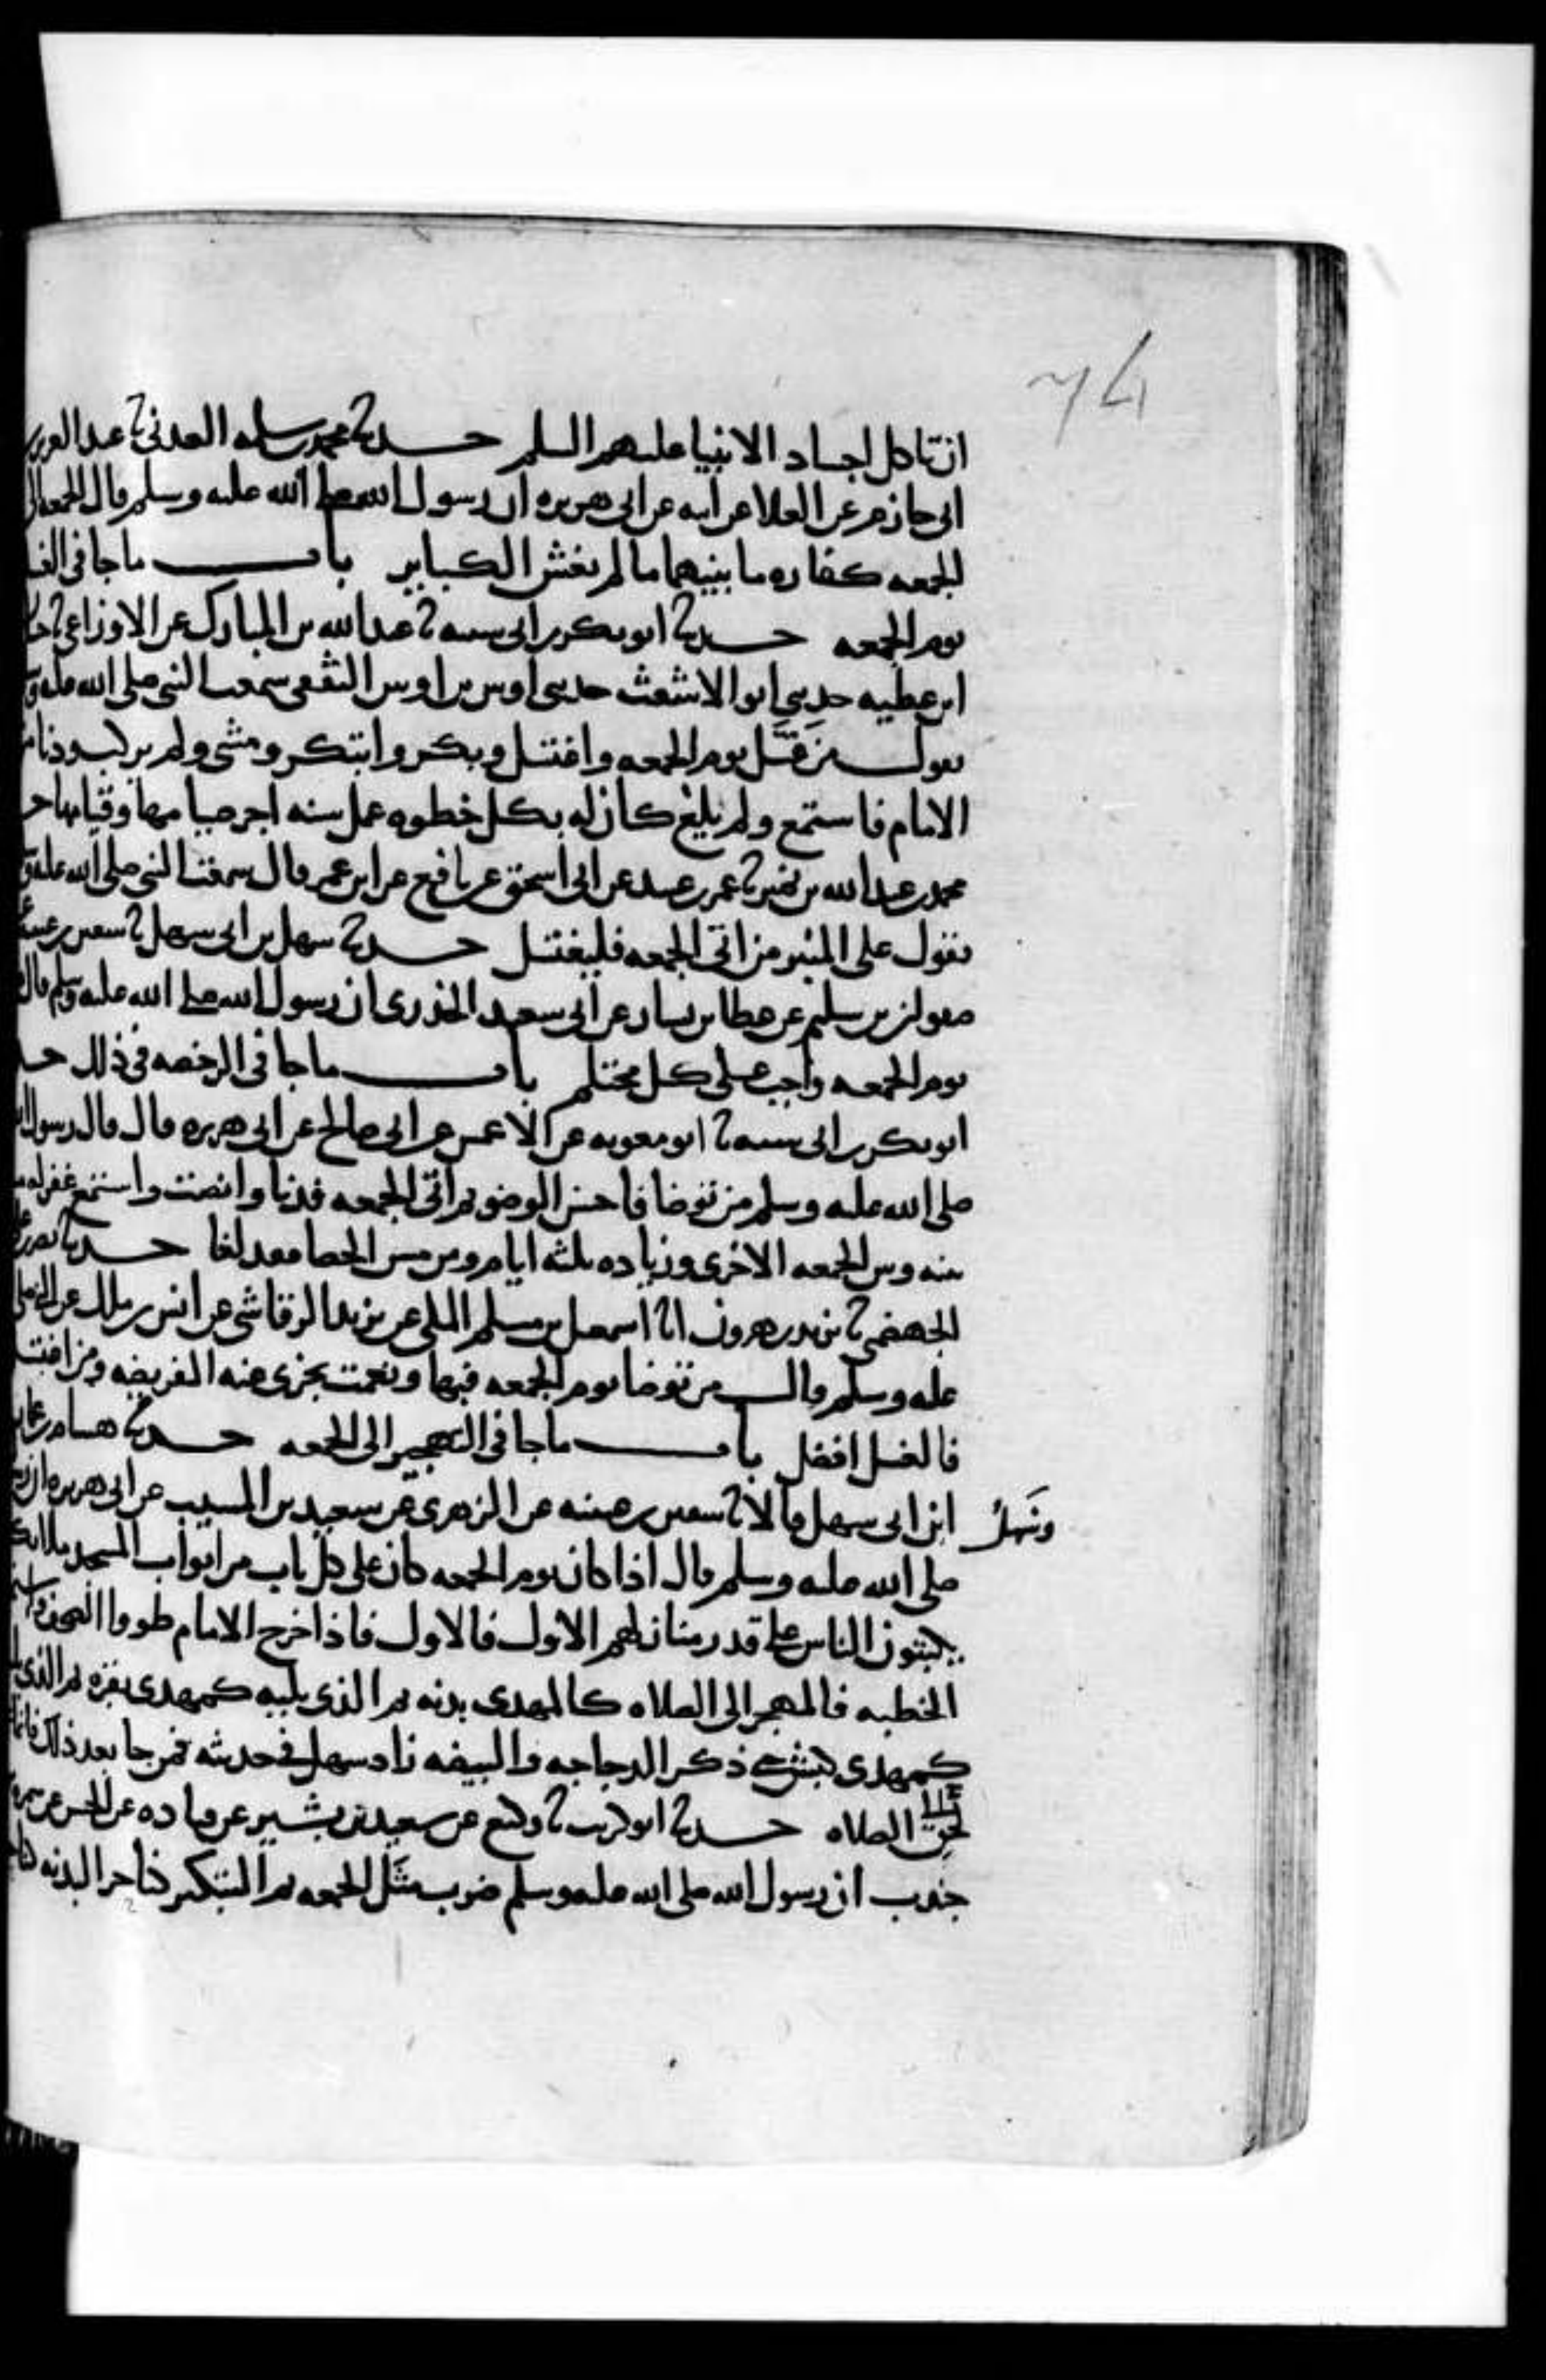 74
ان تاكل اجساد الانبيا عليهم السلم حدثنا محرز بن سلمه العدني ثنا عبد العزيز
ابي حازم عن العلا عن ابيه عن ابي هريره ان رسول الله صلى الله عليه وسلم قال الجمعه الى
الجمعه كفاره ما بينهما ما لم تغش الكباير باب ما جا في الغسل
يوم الجمعه حدثنا ابو بكر بن ابي شيبه ثنا عبد الله بن المبارك عن الاوزاعي ثنا
ابن عطيه حدثني ابو الاشعث حدثني اوس بن اوس الثقفي سمعت النبي صلى الله عليه وسلم
يقول من غسل يوم الجمعه واغتسل وبكر وابتكر ومشى ولم يركب ودنا من
الامام فاستمع ولم يلغ كان له بكل خطوه عمل سنه اجر صيامها وقيامها
محمد بن عبد الله بن نمير ثنا عمر بن عبيد عن ابي اسحق عن نافع عن ابن عمر قال سمعت النبي صلى الله عليه وسلم
يقول على المنبر من اتى الجمعه فليغتسل حدثنا سهل بن ابي سهل ثنا سفين بن عيينه
صفوان بن سليم عن عطا بن يسار عن ابي سعيد الخدري ان رسول الله صلى الله عليه وسلم قال
يوم الجمعه واجب على كل محتلم باب ما جا في الرخصه في ذلك
ابو بكر بن ابي شيبه ثنا ابو معويه عن الاعمش عن ابي صالح عن ابي هريره قال قال رسول الله
صلى الله عليه وسلم من توضا فاحسن الوضو ثم اتى الجمعه فدنا وانصت واستمع غفر له
بينه وبين الجمعه الاخرى وزياده ثلثه ايام ومن مس الحصا فقد لغا حدثنا نصر بن
الجهضمي ثنا يزيد بن هرون انا اسمعيل بن مسلم المكي عن يزيد الرقاشي عن انس بن ملك عن النبي صلى
عليه وسلم قال من توضا يوم الجمعه فبها ونعمت يجزى عنه الفريضه ومن اغتسل
فالغسل افضل باب ما جا في التهجير الى الجمعه حدثنا هشام بن عمار
وسهل ابن ابي سهل قالا ثنا سفين بن عيينه عن الزهري عن سعيد بن المسيب عن ابي هريره ان
صلى الله عليه وسلم قال اذا كان يوم الجمعه كان على كل باب من ابواب المسجد ملائكه
يكتبون الناس على قدر منازلهم الاول فالاول فاذا خرج الامام طووا الصحف
الخطبه فالمهجر الى الصلاه كالمهدي بدنه ثم الذي يليه كمهدي بقره ثم الذي
كمهدي كبش حتى ذكر الدجاجه والبيضه زاد سهل في حديثه فمن جا بعد ذلك فانما
لحق الى الصلاه حدثنا ابو كريب ثنا وكيع عن سعيد بن بشير عن قتاده عن الحسن عن سمره
جندب ان رسول الله صلى الله عليه وسلم ضرب مثل الجمعه ثم التبكير كناحر البدنه